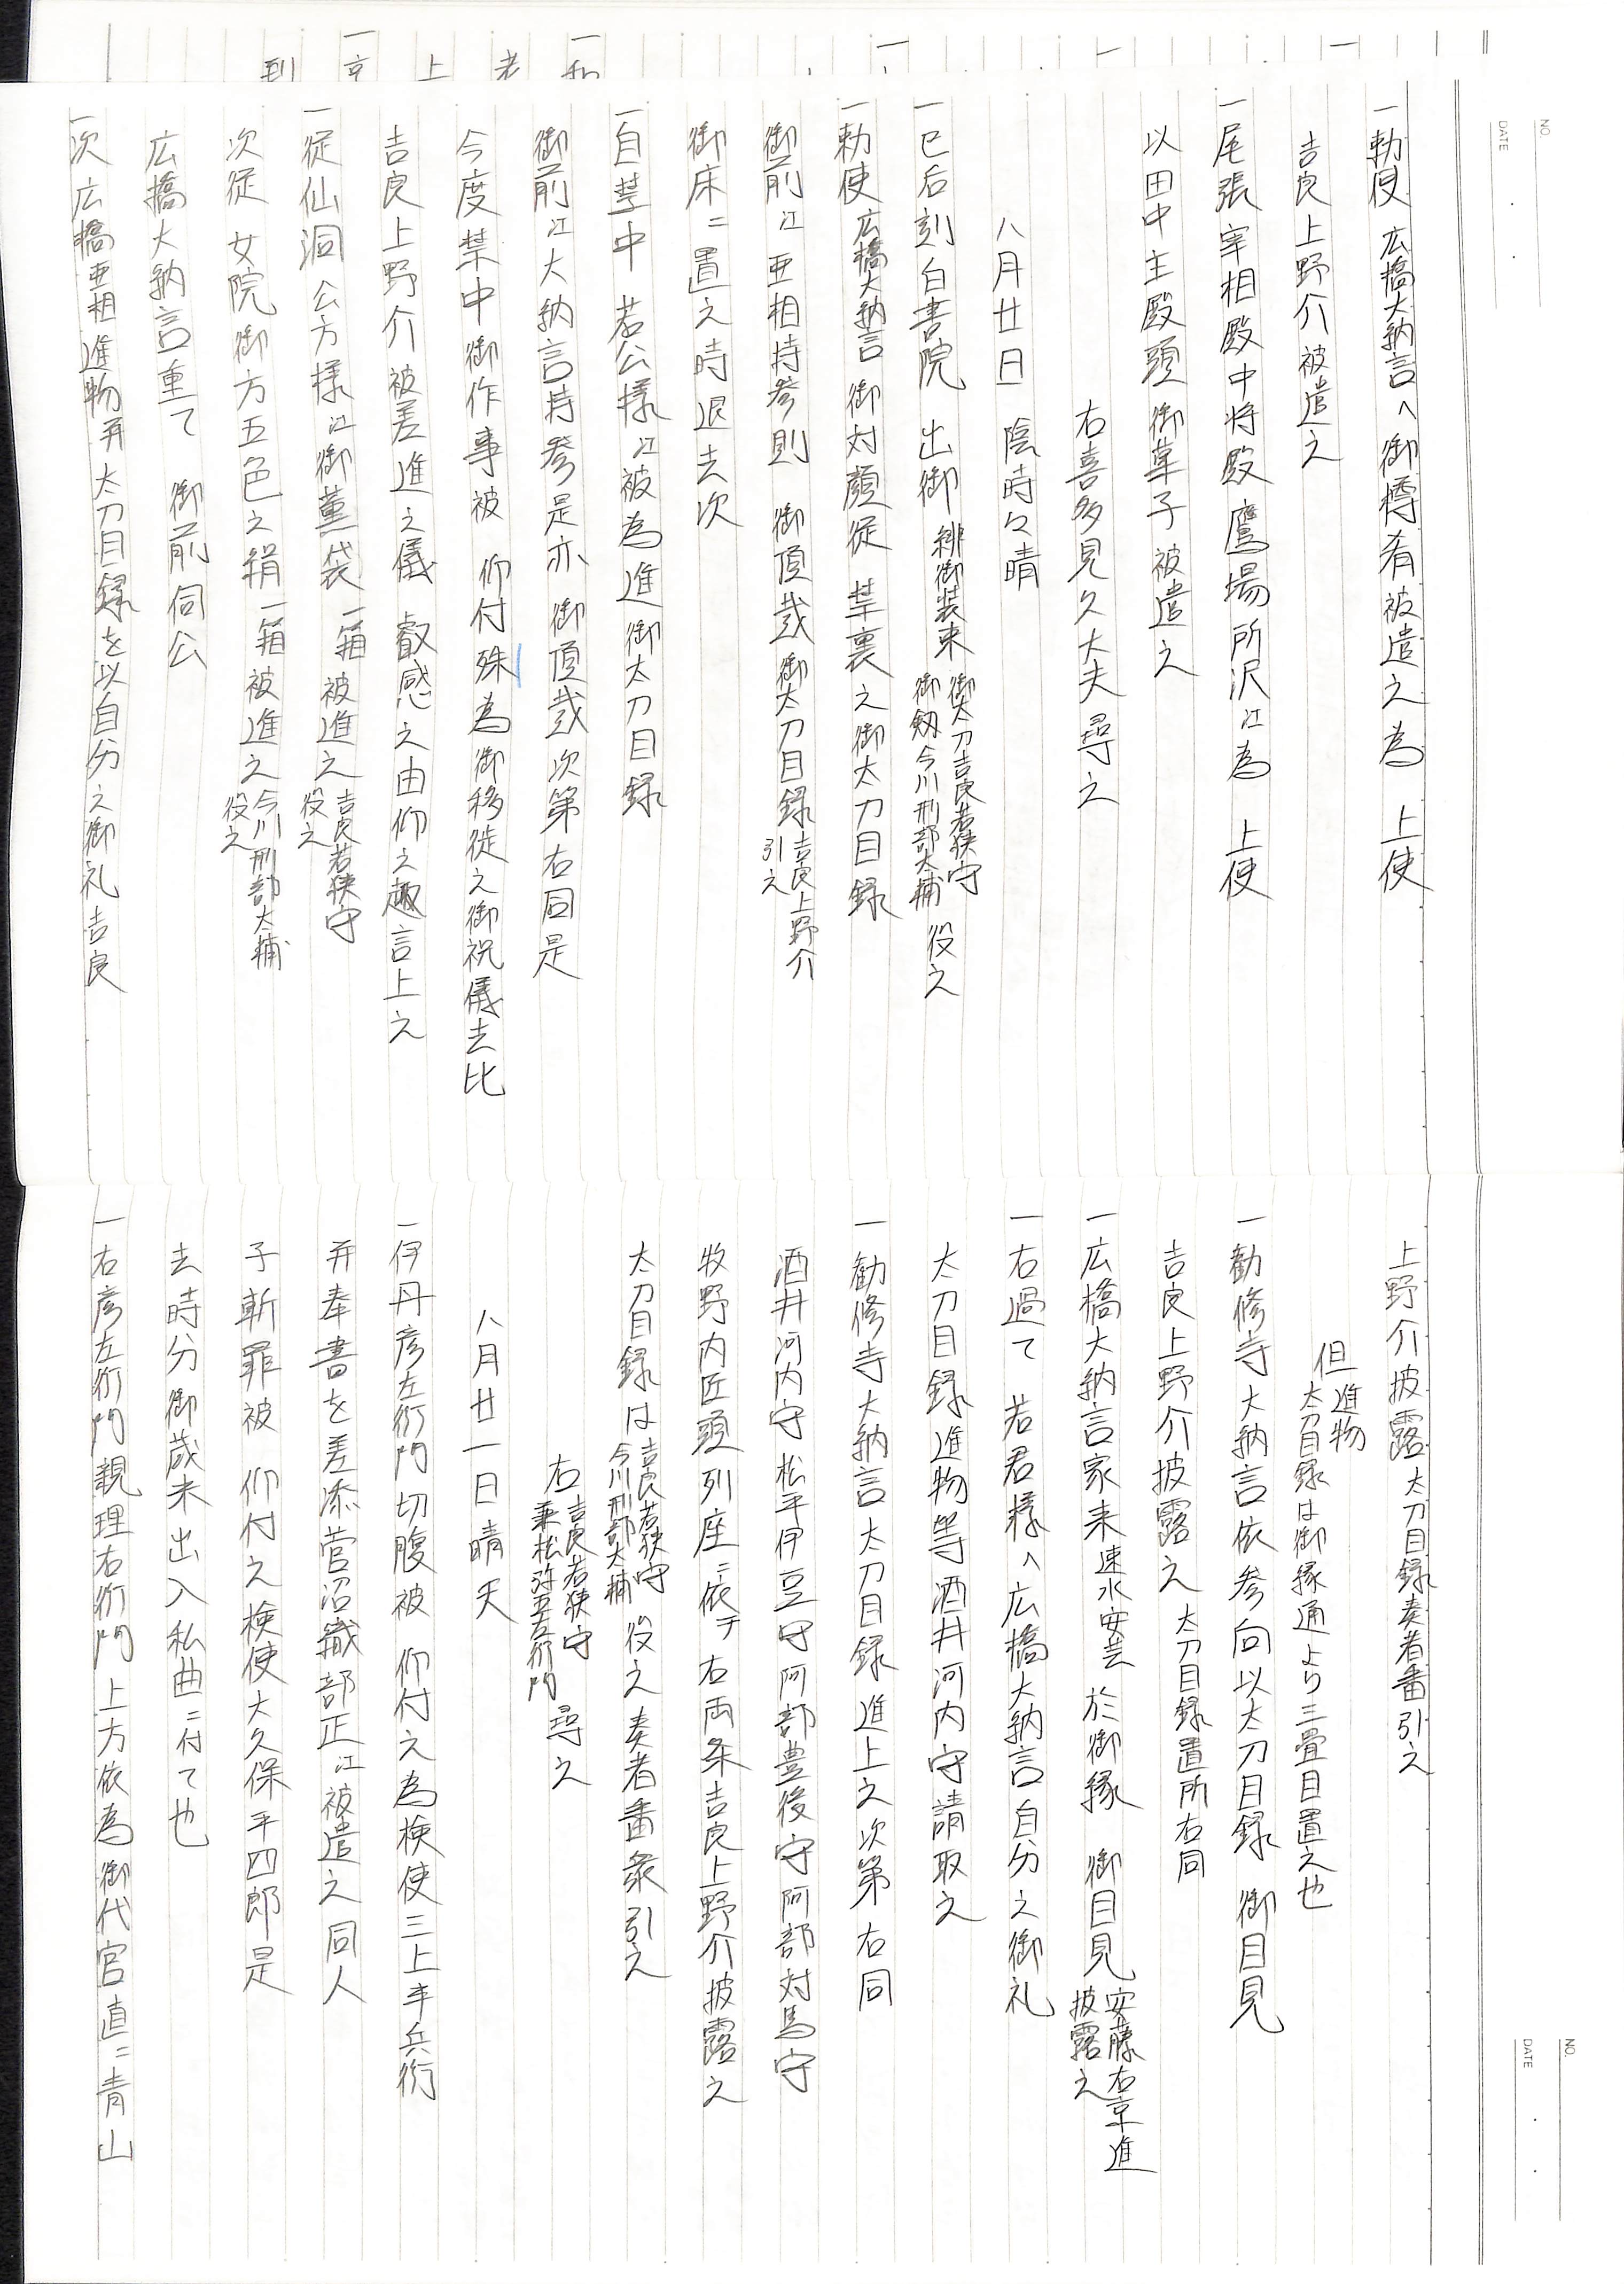 一勅使 広橋大納言へ御樽肴被遣之為 上使
吉良上野介被遣之
一尾張宰相殿中将殿鷹場所沢江為 上使
以田中主殿頭御菓子被遣之
右喜多見久大夫尋之
八月廿日 陰時々晴
一巳后刻白書院 出御 緋御装束 御太刀吉良若狭守 御劔今川刑部大輔 役之
一勅使広橋大納言 御対顔従 禁裏之御太刀目録
御前江亜相持参則 御頂戴御太刀目録 吉良上野介 引之
御床ニ置之時退去次
一自禁中 若公様江被為進御太刀目録
御前江大納言持参是亦 御頂戴次第右同是
今度禁中御作事被 仰付殊為御移徙之御祝儀去比
吉良上野介被差進之儀 叡感之由仰之趣言上之
一従仙洞公方様江御薫袋一箱被進之 吉良若狭守 役之
次従 女院御方五色之絹一箱被進之 今川刑部大輔 役之
広橋大納言重て 御前伺公
一次広橋亜相進物并太刀目録を以自分之御礼吉良
上野介披露 太刀目録奏者番引之
但 進物 太刀目録は御縁通より三畳目置之也
一勧修寺大納言依参向以太刀目録 御目見
吉良上野介披露之 太刀目録置所右同
一広橋大納言家来速水安芸 於御縁 御目見 安藤右京進 披露之
一右過て 若君様へ広橋大納言自分之御礼
太刀目録進物等酒井河内守請取之
一勧修寺大納言太刀目録進上之次第右同
酒井河内守松平伊豆守阿部豊後守阿部対馬守
牧野内匠頭列座ニ依テ右両条吉良上野介披露之
太刀目録は 吉良若狭守 今川刑部大輔 役之奏者番衆引之
右 吉良若狭守 兼松弥五左衛門 尋之
八月廿一日晴天
一伊丹彦左衛門切腹被 仰付之為検使三上半兵衛
并奉書を差添菅沼織部正江被遣之同人
子斬罪被 仰付之検使大久保平四郎是
去時分御蔵米出入私曲ニ付て也
一右彦左衛門親理右衛門上方依為御代官直ニ青山